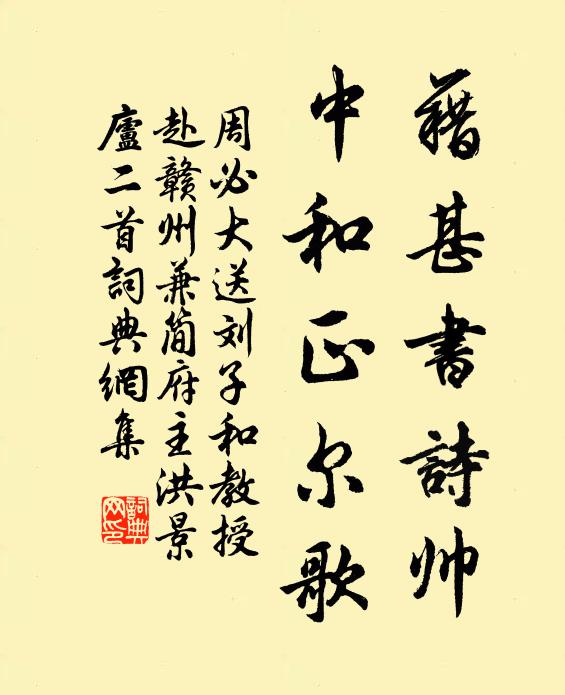 藉甚書詩帅
中和正尔歌
周必大送刘子和教授
赴赣州兼简府主洪景
廬二首詞典網集
詞典網印